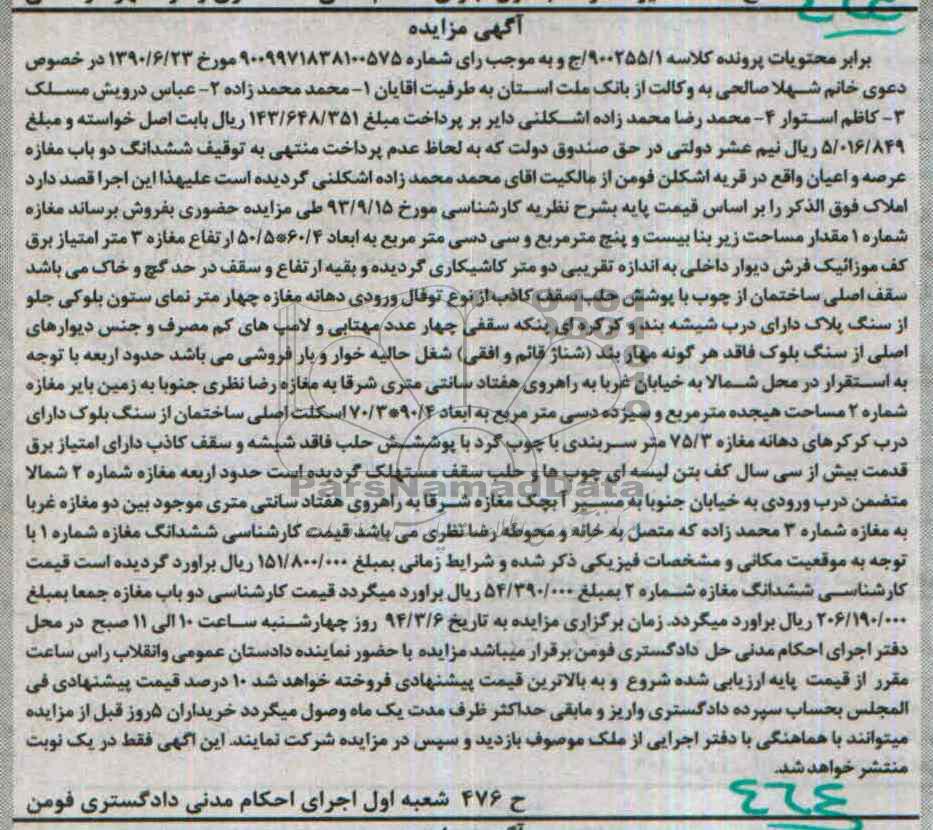 آگهی مزایده
برابر محتویات پرونده کلاسه ۹۰۰۲۵۵/۱/ج و به موجب رای شماره ۹۰۰۹۹۷۱۸۳۸۱۰۰۵۷۵ مورخ ۱۳۹۰/۶/۲۳ در خصوص
دعوی خانم شهلا صالحی به وکالت از بانک ملت استان به طرفیت اقایان ۱- محمد محمد زاده ۲- عباس درویش مسلک
۳- کاظم استوار ۴- محمد رضا محمد زاده اشکلنی دایر بر پرداخت مبلغ ۱۴۳/۶۴۸/۳۵۱ ریال بابت اصل خواسته و مبلغ
۵/۰۱۶/۸۴۹ ریال نیم عشر دولتی در حق صندوق دولت که به لحاظ عدم پرداخت منتهی به توقیف ششدانگ دو باب مغازه
عرصه و اعیان واقع در قریه اشکلن فومن از مالکیت اقای محمد محمد زاده اشکلنی گردیده است علیهذا این اجرا قصد دارد
املاک فوق الذکر را بر اساس قیمت پایه بشرح نظریه کارشناسی مورخ ۹۳/۹/۱۵ طی مزایده حضوری بفروش برساند مغازه
شماره ۱ مقدار مساحت زیر بنا بیست و پنج مترمربع و سی دسی متر مربع به ابعاد ۶۰/۴*۵۰/۵ ارتفاع مغازه ۳ متر امتیاز برق
کف موزائیک فرش دیوار داخلی به اندازه تقریبی دو متر کاشیکاری گردیده و بقیه ارتفاع و سقف در حد گچ و خاک می باشد
سقف اصلی ساختمان از چوب با پوشش حلب سقف کاذب از نوع توفال ورودی دهانه مغازه چهار متر نمای ستون بلوکی جلو
از سنگ پلاک دارای درب شیشه بند و کرکره ای پنکه سقفی چهار عدد مهتابی و لامپ های کم مصرف و جنس دیوارهای
اصلی از سنگ بلوک فاقد هر گونه مهار بند (شناژ قائم و افقی) شغل حالیه خوار و بار فروشی می باشد حدود اربعه با توجه
به استقرار در محل شمالا به خیابان غربا به راهروی هفتاد سانتی متری شرقا به مغازه رضا نظری جنوبا به زمین بایر مغازه
شماره ۲ مساحت هیجده متر مربع و سیزده دسی متر مربع به ابعاد ۹۰/۴*۷۰/۳ اسکلت اصلی ساختمان از سنگ بلوک دارای
درب کرکرهای دهانه مغازه ۷۵/۳ متر سربندی با چوب گرد با پوشش حلب فاقد شیشه و سقف کاذب دارای امتیاز برق
قدمت بیش از سی سال کف بتن لیسه ای چوب ها و حلب سقف مستهلک گردیده است حدود اربعه مغازه شماره ۲ شمالا
متضمن درب ورودی به خیابان جنوبا به مسیر آبچک مغازه شرقا به راهروی هفتاد سانتی متری موجود بین دو مغازه غربا
به مغازه شماره ۳ محمد زاده که متصل به خانه و محوطه رضا نظری می باشد قیمت کارشناسی ششدانگ مغازه شماره ۱ با
توجه به موقعیت مکانی و مشخصات فیزیکی ذکر شده و شرایط زمانی بمبلغ ۱۵۱/۸۰۰/۰۰۰ ریال براورد گردیده است قیمت
کارشناسی ششدانگ مغازه شماره ۲ بمبلغ ۵۴/۳۹۰/۰۰۰ ریال براورد میگردد قیمت کارشناسی دو باب مغازه جمعا بمبلغ
۲۰۶/۱۹۰/۰۰۰ ریال براورد میگردد. زمان برگزاری مزایده به تاریخ ۹۴/۳/۶ روز چهارشنبه ساعت ۱۰ الی ۱۱ صبح در محل
دفتر اجرای احکام مدنی حل دادگستری فومن برقرار میباشد مزایده با حضور نماینده دادستان عمومی وانقلاب راس ساعت
مقرر از قیمت پایه ارزیابی شده شروع و به بالاترین قیمت پیشنهادی فروخته خواهد شد ۱۰ درصد قیمت پیشنهادی فی
المجلس بحساب سپرده دادگستری واریز و مابقی حداکثر ظرف مدت یک ماه وصول میگردد خریداران ۵روز قبل از مزایده
میتوانند با هماهنگی با دفتر اجرایی از ملک موصوف بازدید و سپس در مزایده شرکت نمایند. این اگهی فقط در یک نوبت
منتشر خواهد شد.
ح ۴۷۶ شعبه اول اجرای احکام مدنی دادگستری فومن
ParsNamadData